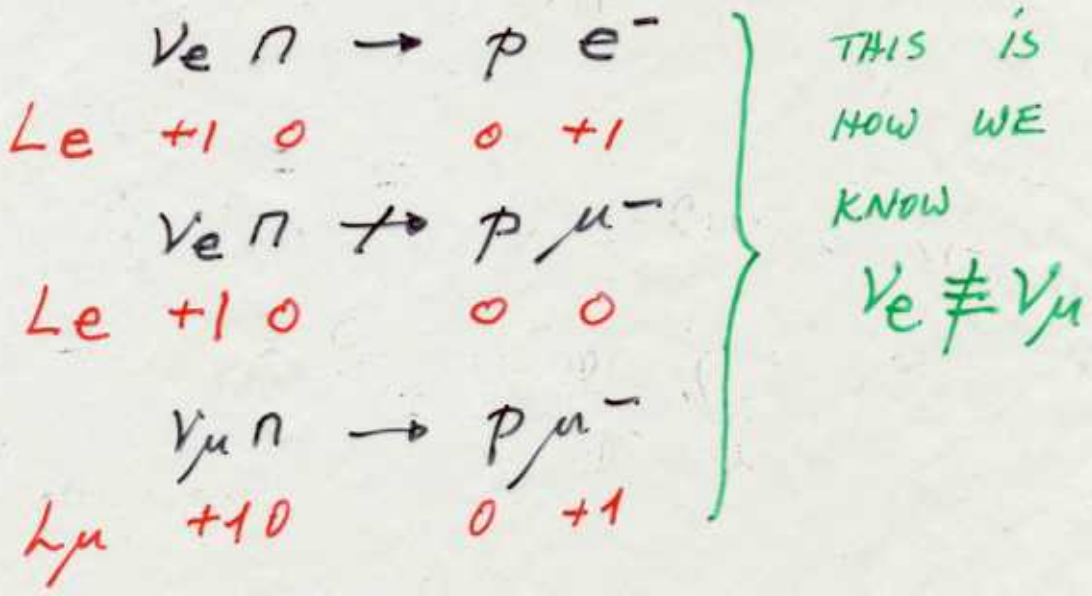 νe n → p e⁻
Le +1 0 0 +1
νe n ↛ p μ⁻
Le +1 0 0 0
νμ n → p μ⁻
Lμ +1 0 0 +1
THIS IS
HOW WE
KNOW
νe ≢ νμ